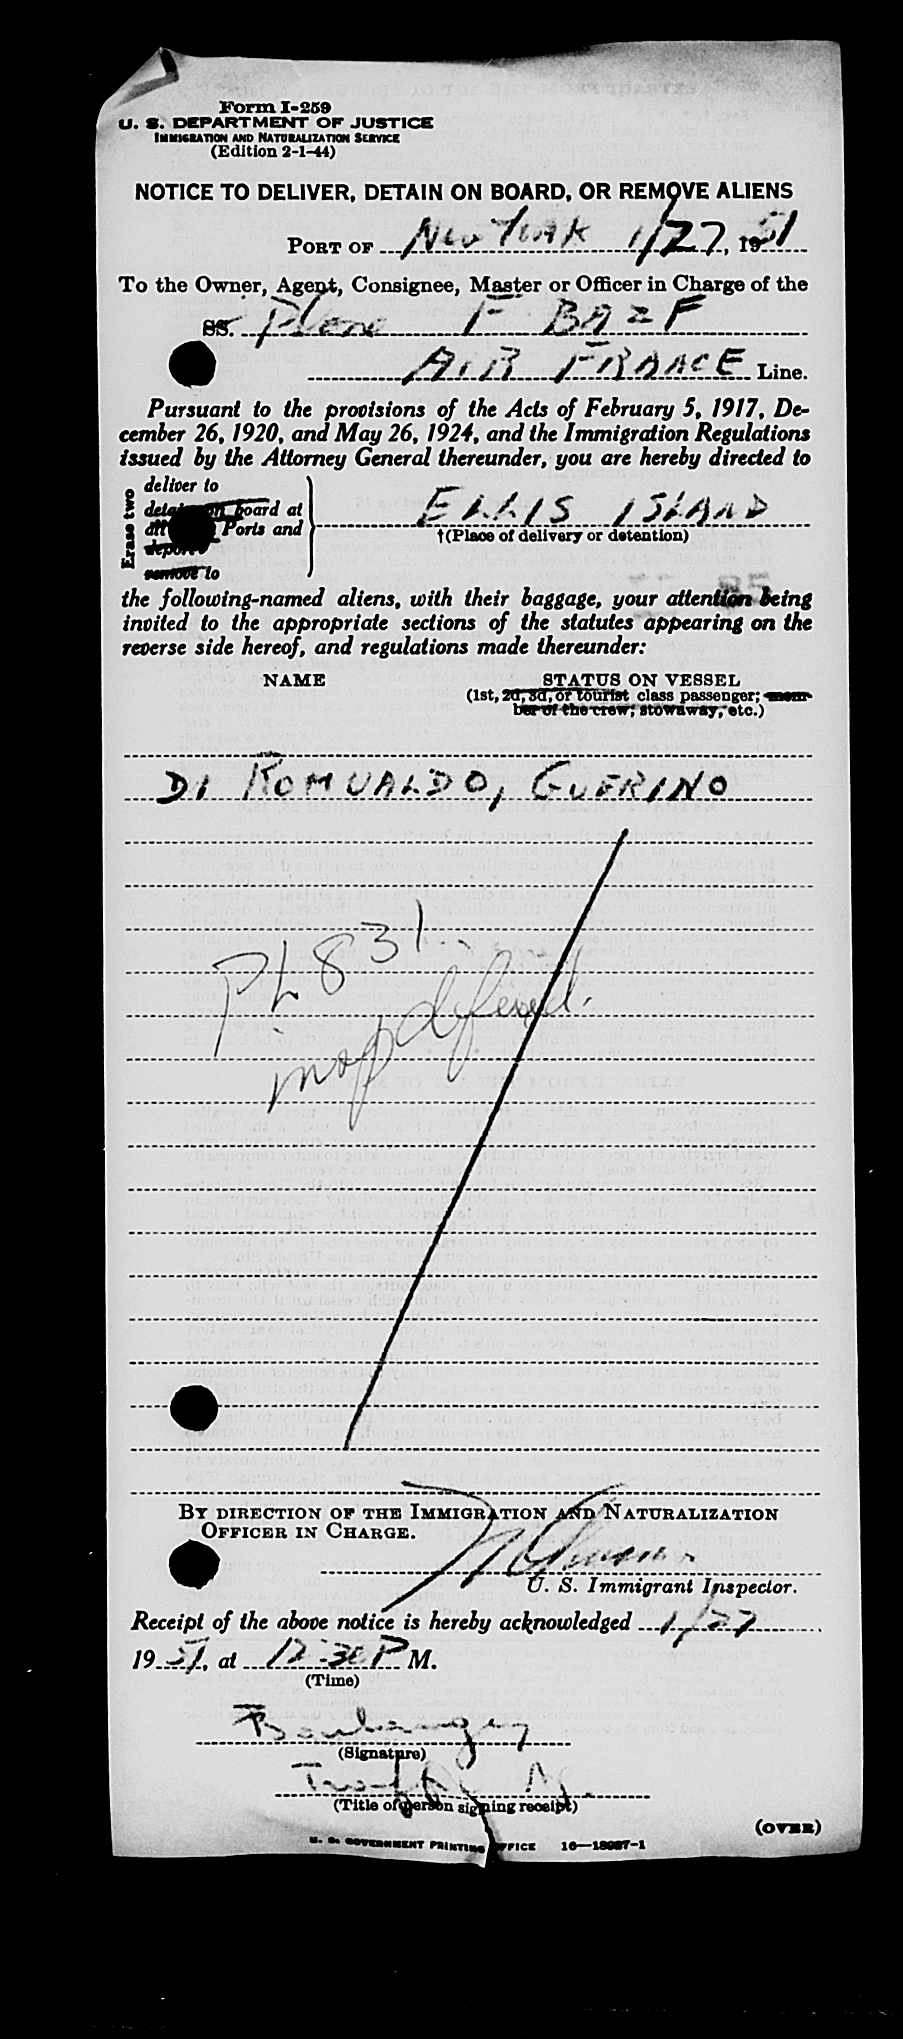 Form I-259
U. S. DEPARTMENT OF JUSTICE
IMMIGRATION AND NATURALIZATION SERVICE
(Edition 2-1-44)
NOTICE TO DELIVER, DETAIN ON BOARD, OR REMOVE ALIENS
PORT OF New York 1/27, 1951
To the Owner, Agent, Consignee, Master or Officer in Charge of the
SS. Plane F BAZF
AIR FRANCE Line.
Pursuant to the provisions of the Acts of February 5, 1917, De-
cember 26, 1920, and May 26, 1924, and the Immigration Regulations
issued by the Attorney General thereunder, you are hereby directed to
Erase two
deliver to
detain on board at
Ports and
deport
remove to
ELLIS ISLAND
†(Place of delivery or detention)
the following-named aliens, with their baggage, your attention being
invited to the appropriate sections of the statutes appearing on the
reverse side hereof, and regulations made thereunder:
NAME STATUS ON VESSEL
(1st, 2d, 3d, or tourist class passenger; mem-
ber of the crew; stowaway, etc.)
DI ROMUALDO, GUERINO
PL 831
insp deferred.
BY DIRECTION OF THE IMMIGRATION AND NATURALIZATION
OFFICER IN CHARGE.
U. S. Immigrant Inspector.
Receipt of the above notice is hereby acknowledged 1/27
1951, at 12:30 P M.
(Time)
Boulanger
(Signature)
(Title of person signing receipt)
(OVER)
U. S. GOVERNMENT PRINTING OFFICE 16—18087-1